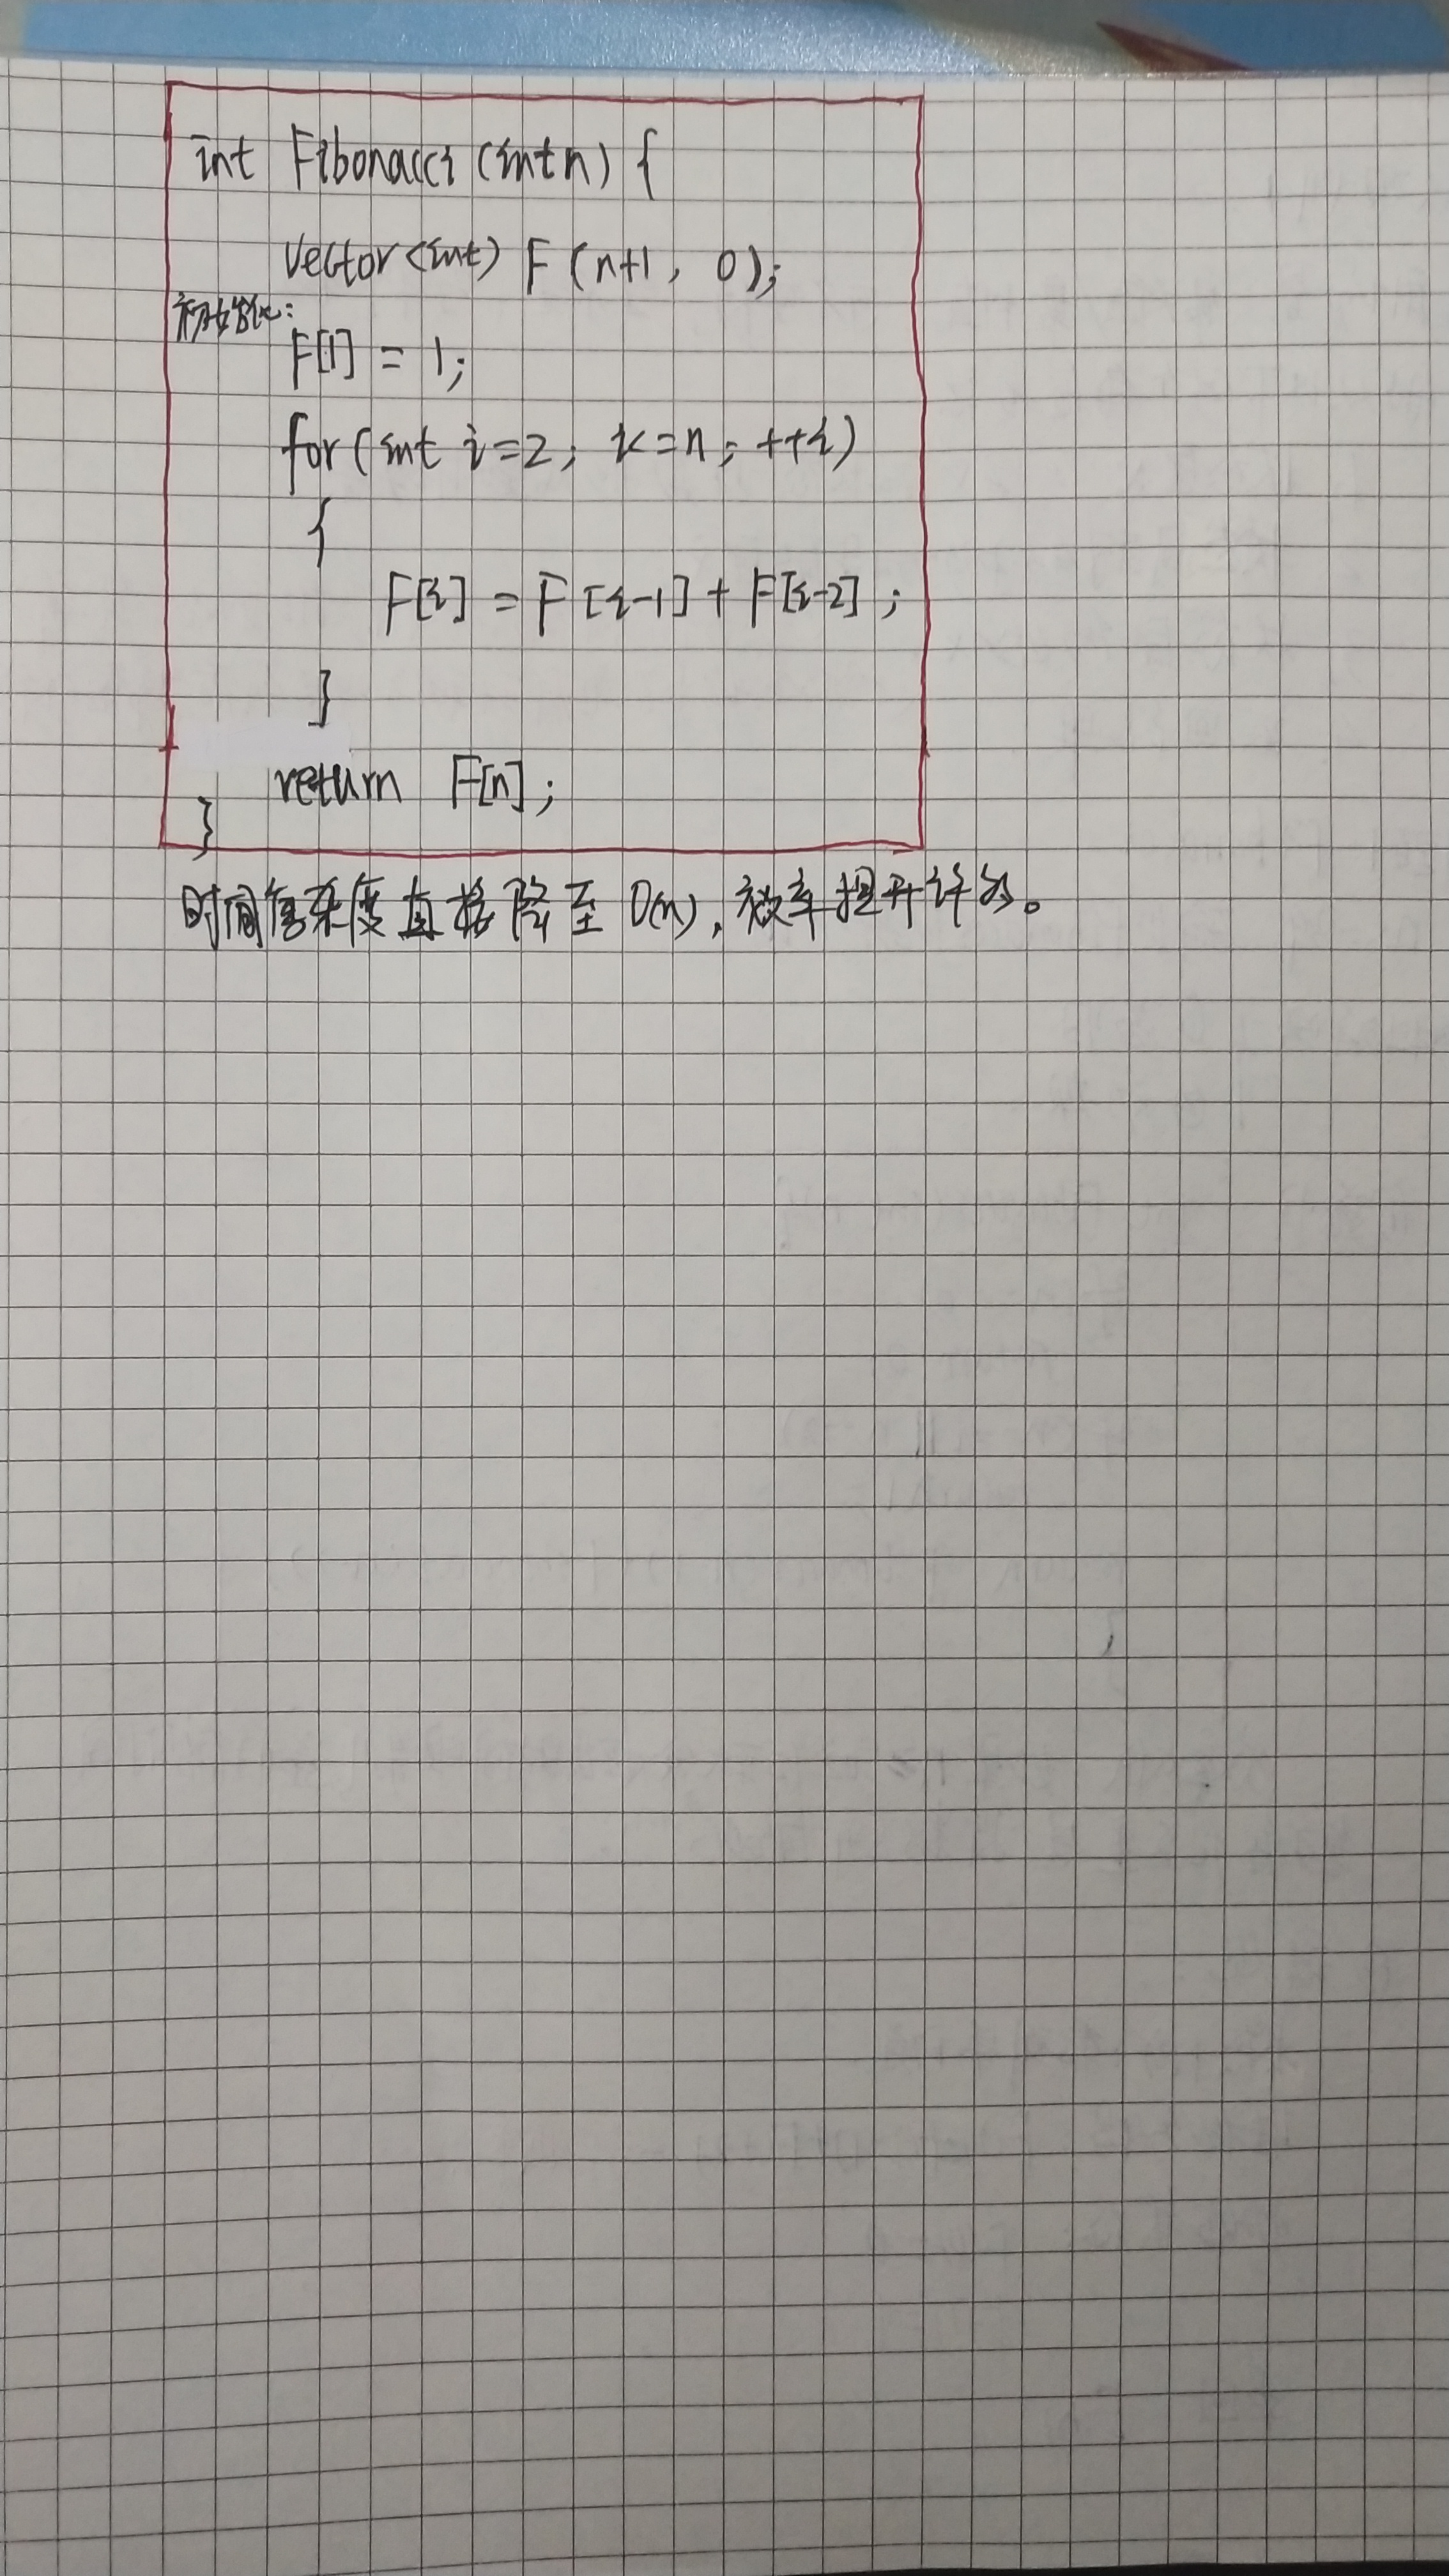 int Fibonacci (int n) {
vector<int> F (n+1, 0);
初始值:
F[1] = 1;
for (int i=2; i<=n; ++i)
{
F[i] = F[i-1] + F[i-2];
}
return F[n];
}
时间复杂度直接降至 O(n), 效率提升许多。